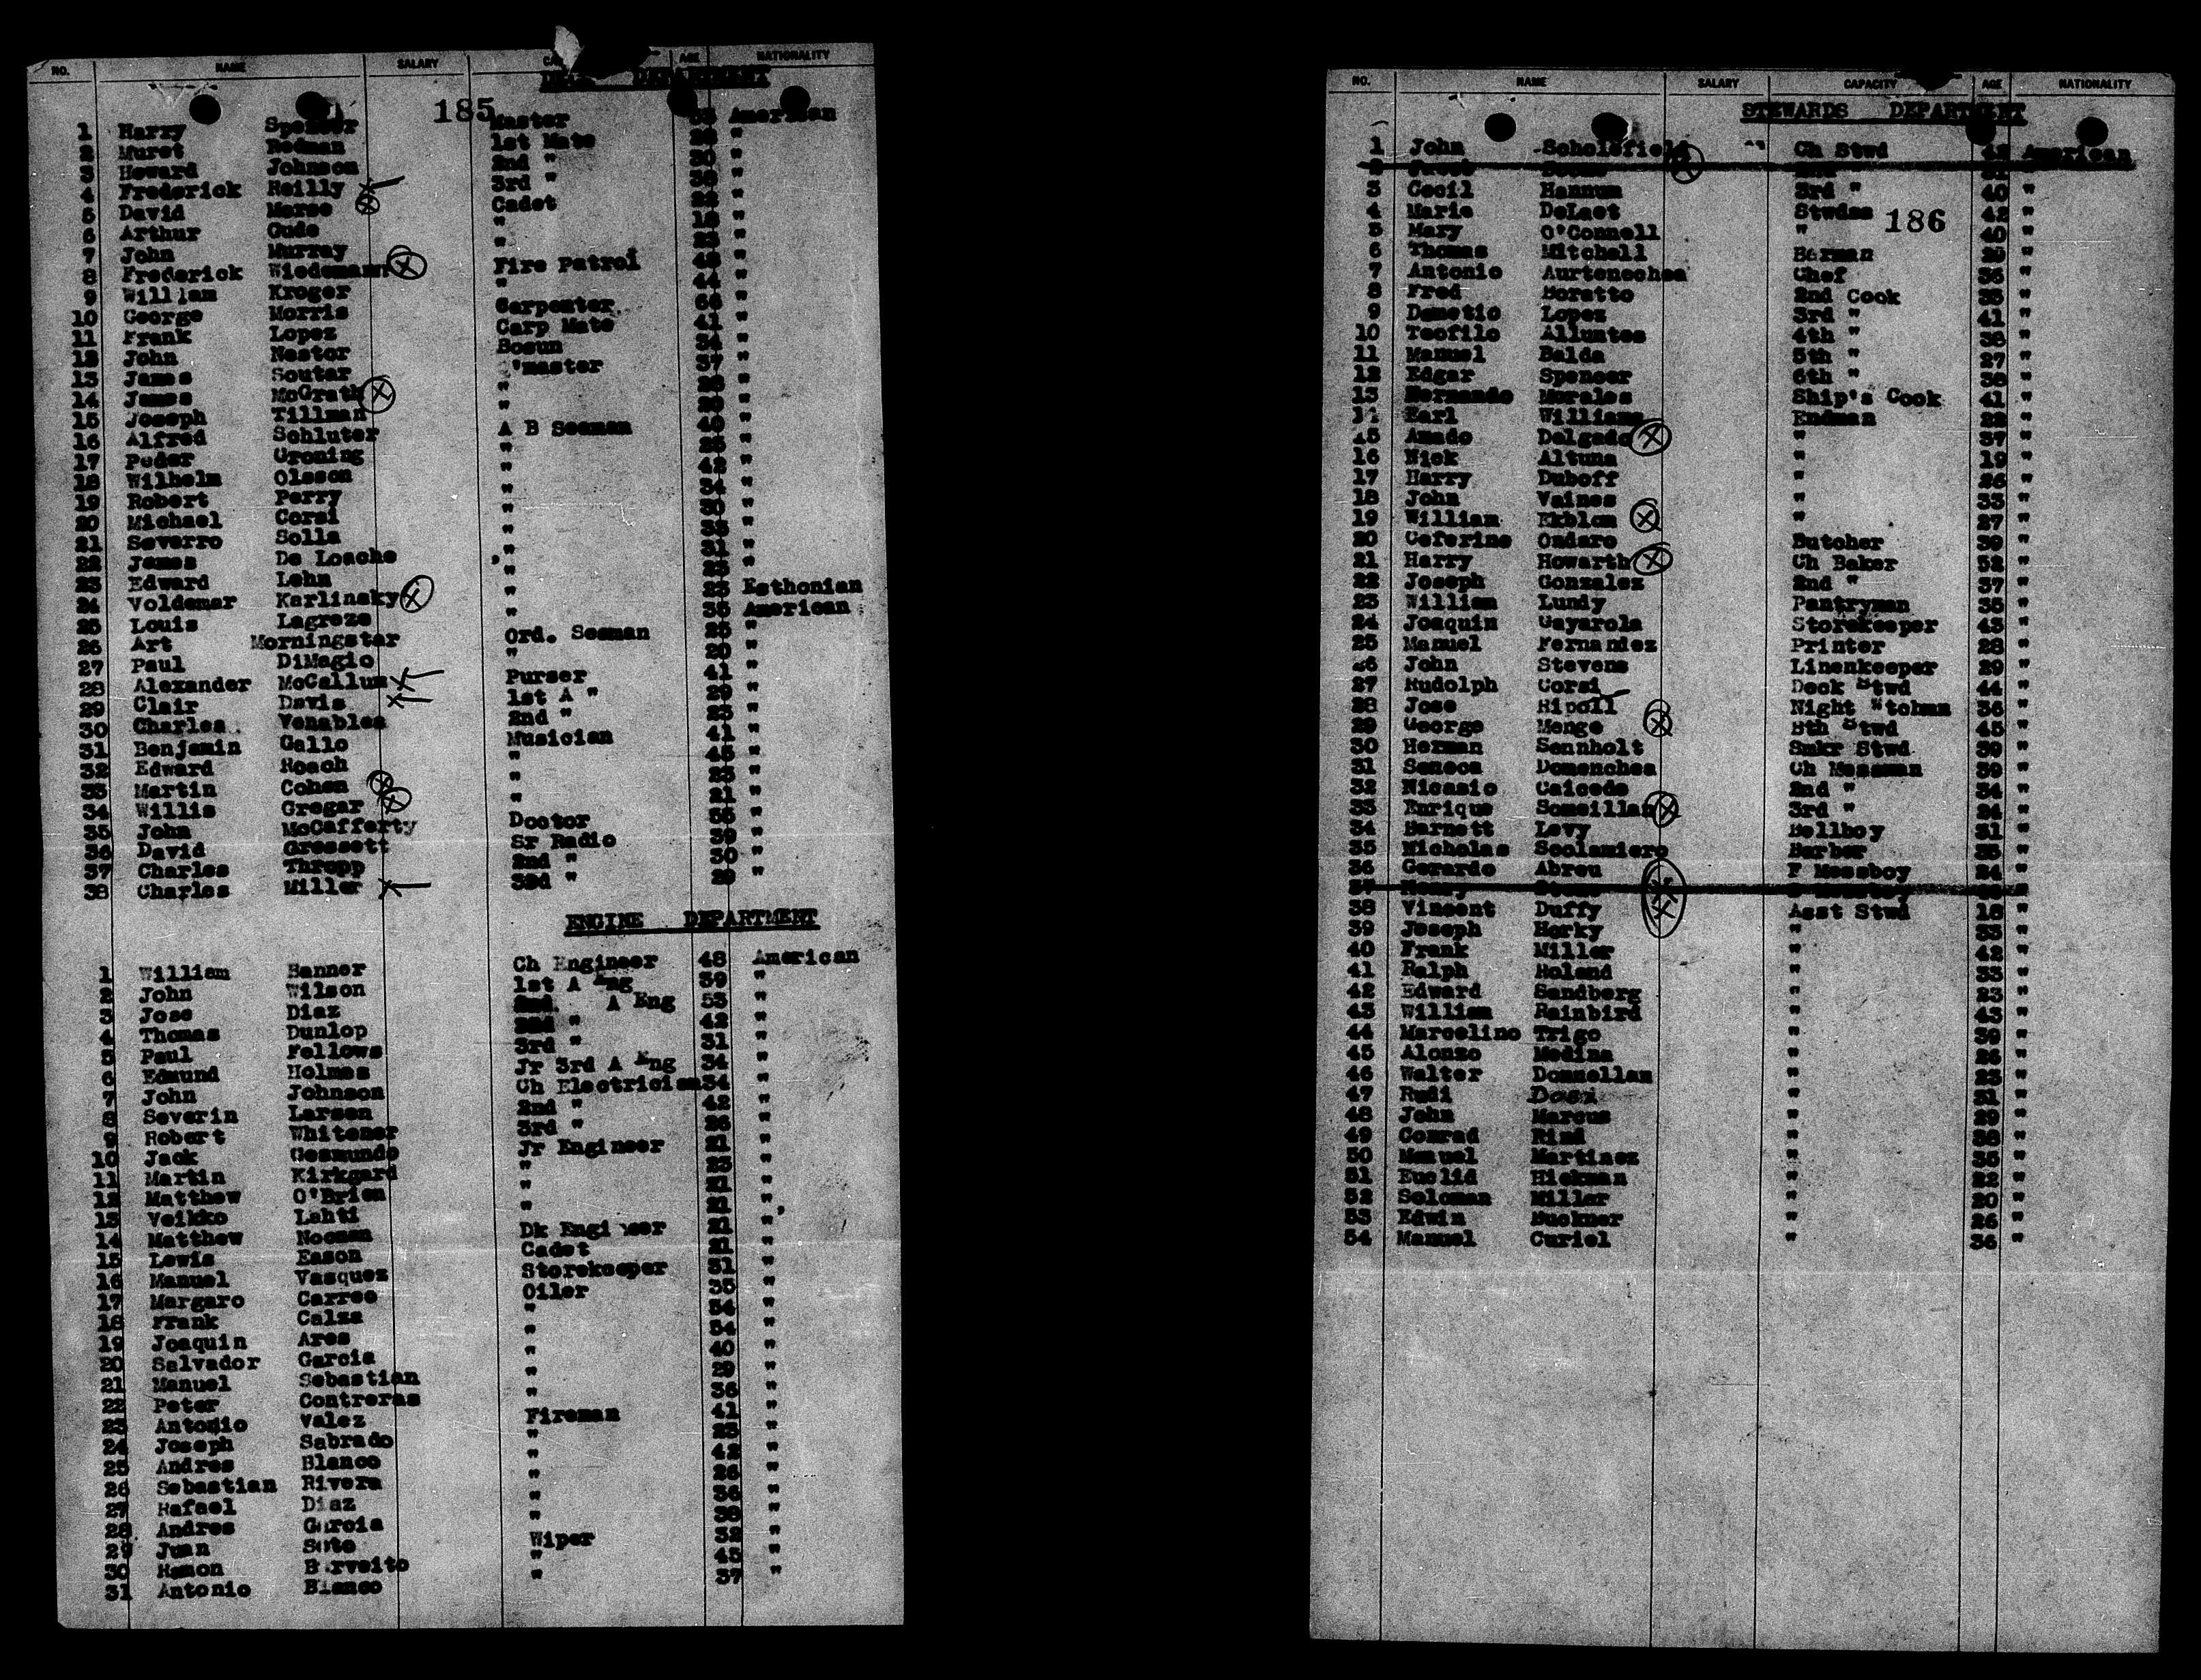 NO. NAME SALARY AGE NATIONALITY
DEPARTMENT
185
1 Harry Spencer Master 53 American
2 Muret Redman 1st Mate "
3 Howard Johnson 2nd " 30 "
4 Frederick Reilly 3rd " "
5 David Morse Cadet 22 "
6 Arthur Gude " 19 "
7 John Murray " 23 "
8 Frederick Wiedemann Fire Patrol 49 "
9 William Kroger " 44 "
10 George Morris Carpenter 66 "
11 Frank Lopez Carp Mate 41 "
12 John Nestor Bosun 34 "
13 James Soutar 'master 37 "
14 James McGrath " "
15 Joseph Tillman " "
16 Alfred Schluter A B Seaman 40 "
17 Peder Groning " 25 "
18 Wilhelm Olsson " 42 "
19 Robert Perry " 34 "
20 Michael Corsi " 30 "
21 Severro Solla " "
22 James De Loache " 31 "
23 Edward Lehn " 23 "
24 Voldemar Karlinsky " 23 Esthonian
25 Louis Lagreze " 35 American
26 Art Morningstar Ord. Seaman 25 "
27 Paul DiMagio " 20 "
28 Alexander McCallum Purser 41 "
29 Clair Davis 1st A " 29 "
30 Charles Venables 2nd " 23 "
31 Benjamin Gallo Musician 41 "
32 Edward Roach " 45 "
33 Martin Cohen " 23 "
34 Willis Gregar " 21 "
35 John McCafferty Doctor 55 "
36 David Gressett Sr Radio 39 "
37 Charles Thropp 2nd " 30 "
38 Charles Miller 3rd " 29 "
ENGINE DEPARTMENT
1 William Banner Ch Engineer 48 American
2 John Wilson 1st A Eng 39 "
3 Jose Diaz 2nd A Eng 53 "
4 Thomas Dunlop 2nd " 42 "
5 Paul Fellows 3rd " 31 "
6 Edmund Holmes Jr 3rd A Eng 34 "
7 John Johnson Ch Electrician 34 "
8 Severin Larsen 2nd " 42 "
9 Robert Whitener 3rd " 26 "
10 Jack Gesmundo Jr Engineer 21 "
11 Martin Kirkgard " 23 "
12 Matthew O'Brien " 21 "
13 Veikko Lahti " 21 "
14 Matthew Noonan Dk Engineer 21 "
15 Lewis Eason Cadet 21 "
16 Manuel Vasquez Storekeeper 51 "
17 Margaro Carreo Oiler 35 "
18 Frank Calza " 34 "
19 Joaquin Ares " 34 "
20 Salvador Garcia " 40 "
21 Manuel Sebastian " 29 "
22 Peter Contreras " 36 "
23 Antonio Valez Fireman 41 "
24 Joseph Sabrado " 25 "
25 Andres Blanco " 42 "
26 Sebastian Rivera " 26 "
27 Rafael Diaz " 36 "
28 Andres Garcia " 38 "
29 Juan Soto Wiper 32 "
30 Ramon Barveito " 45 "
31 Antonio Blanco " 37 "
NO. NAME SALARY CAPACITY AGE NATIONALITY
STEWARDS DEPARTMENT
1 John Scholefield Ch Stwd American
3 Cecil Hannum 3rd " 40 "
4 Marie DeLaet Stwdss 42 "
186
5 Mary O'Connell " 40 "
6 Thomas Mitchell Barman 29 "
7 Antonio Aurtenechea Chef 36 "
8 Fred Moratto 2nd Cook 35 "
9 Demetio Lopez 3rd " 41 "
10 Teofilo Alluntes 4th " 36 "
11 Manuel Balda 5th " 27 "
12 Edgar Spencer 6th " 38 "
13 Hernando Morales Ship's Cook 41 "
14 Earl Williams Endman 22 "
15 Amado Delgado " 37 "
16 Nick Altuna " 19 "
17 Harry Duboff " 26 "
18 John Vaines " 33 "
19 William Ekblom " 27 "
20 Ceferino Ondaro Butcher 39 "
21 Harry Howarth Ch Baker 52 "
22 Joseph Gonzalez 2nd " 37 "
23 William Lundy Pantryman 35 "
24 Joaquin Gayarola Storekeeper 43 "
25 Manuel Fernandez Printer 28 "
26 John Stevens Linenkeeper 29 "
27 Rudolph Corsi Deck Stwd 44 "
28 Jose Ripoll Night Wtchmn 36 "
29 George Menge Bth Stwd 45 "
30 Herman Sennholt Smkr Stwd 39 "
31 Seneca Domenchea Ch Messman 39 "
32 Nicasio Caicedo 2nd " 34 "
33 Enrique Someillan 3rd " 24 "
34 Barnett Levy Bellboy 31 "
35 Nicholas Scolamiero Barber 35 "
36 Gerardo Abreu P Messboy 24 "
38 Vincent Duffy Asst Stwd 18 "
39 Joseph Horky " 33 "
40 Frank Miller " 42 "
41 Ralph Roland " 33 "
42 Edward Sandberg " 23 "
43 William Rainbird " 43 "
44 Marcelino Trigo " 39 "
45 Alonzo Medina " 26 "
46 Walter Donnellan " 23 "
47 Rudi " 31 "
48 John Marcus " 29 "
49 Conrad Rind " 38 "
50 Manuel Martinez " 35 "
51 Euclid Hickman " 22 "
52 Soloman Miller " 20 "
53 Edwin Buckner " 26 "
54 Manuel Curiel " 36 "